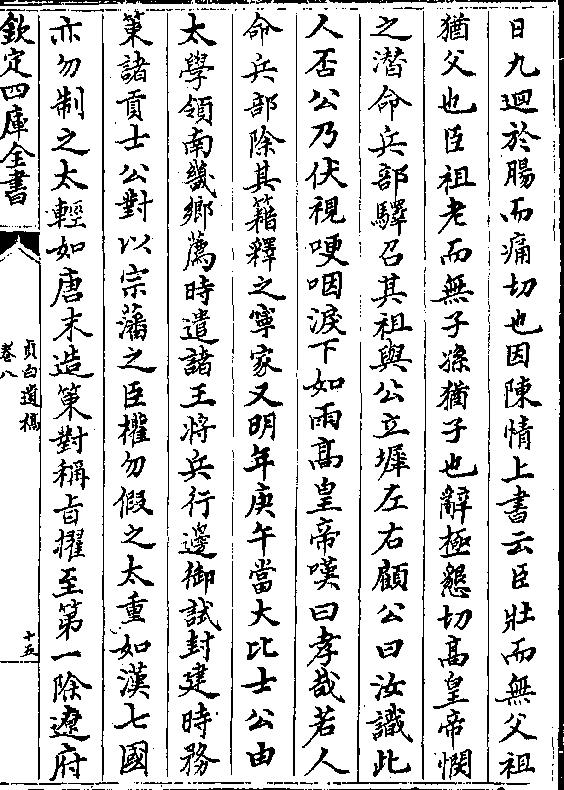 日九迴於腸而痛切也因陳情上書云臣壯而無父祖
猶父也臣祖老而無子孫猶子也辭極懇切高皇帝憫
之潛命兵部驛召其祖與公立墀左右顧公曰汝識此
人否公乃伏視哽咽淚下如雨高皇帝嘆曰孝哉若人
命兵部除其籍釋之寧家又明年庚午當大比士公由
太學領南畿鄉薦時遣諸王將兵行邊御試封建時務
策諸貢士公對以宗藩之臣權勿假之太重如漢七國
亦勿制之太輕如唐末造策對稱旨擢至第一除遼府
欽定四庫全書
貞白遺稿
卷八
十五